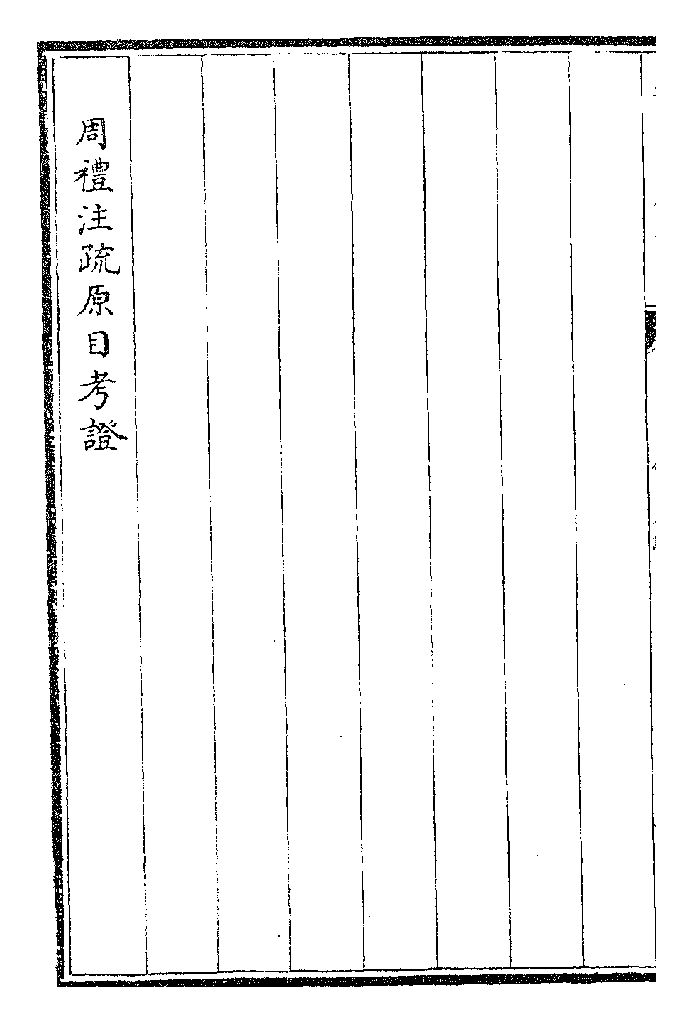 周禮注疏原目考證